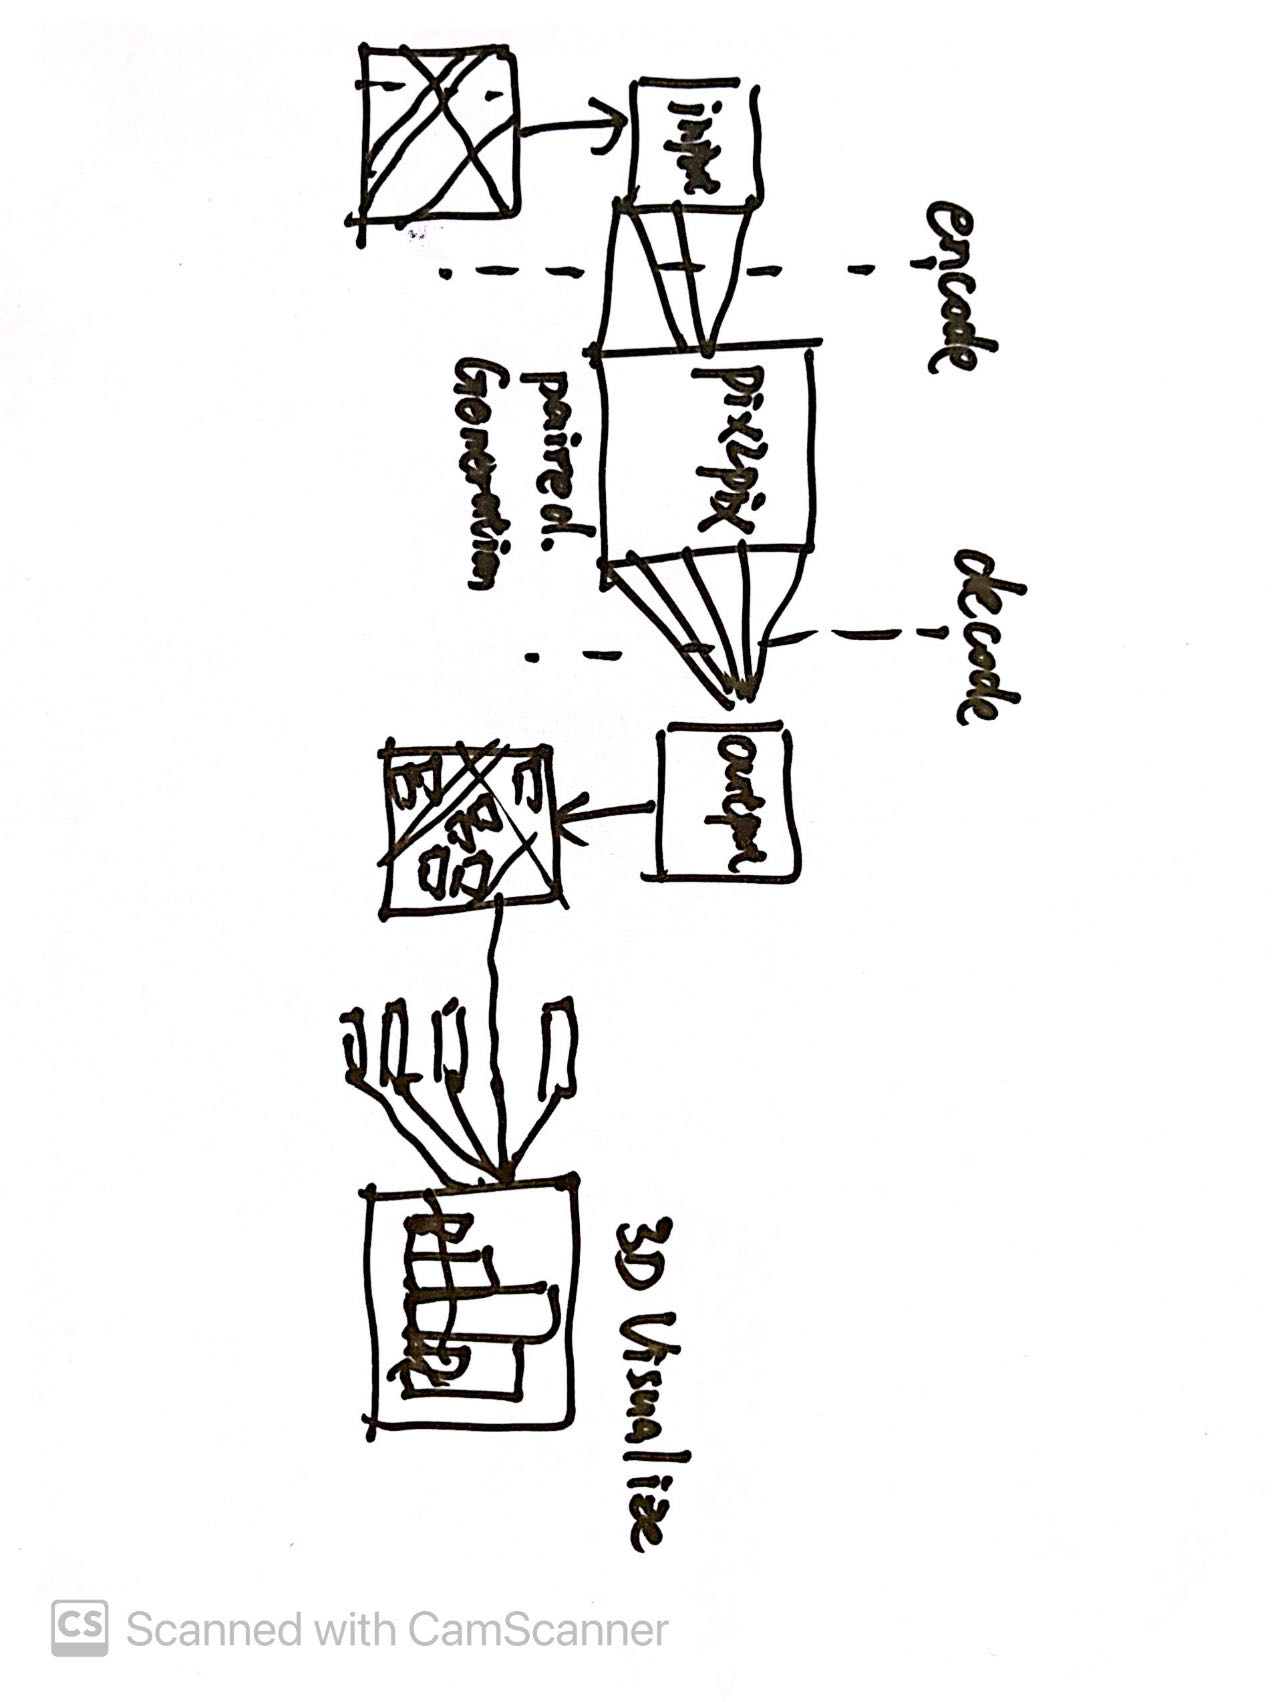 encode
decode
input
pix2pix
output
paired.
Generation
3D Visualize
CS Scanned with CamScanner